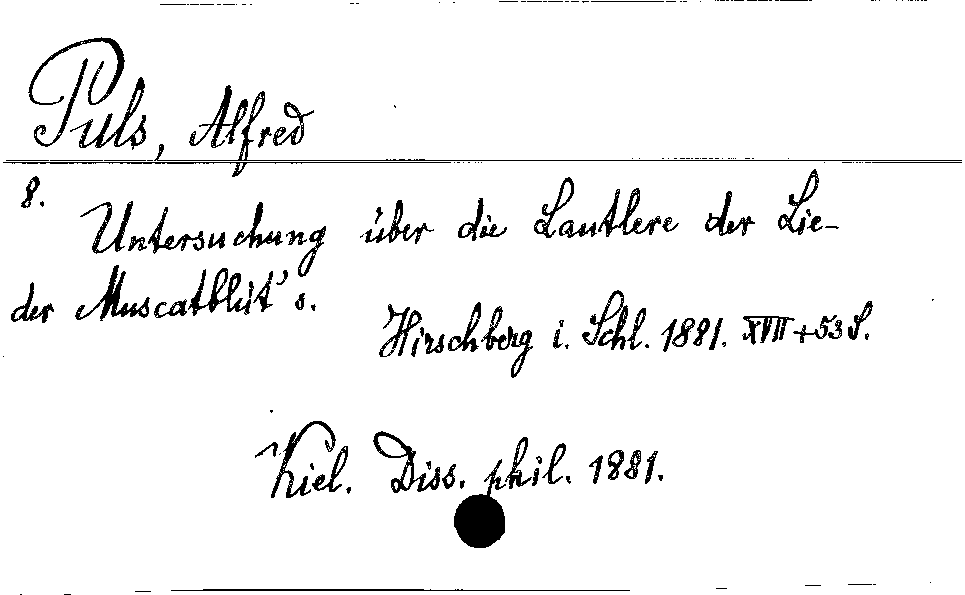 Puls, Alfred
8.
Untersuchung über die Lautlere der Lie-
der Muscatblüt's.
Hirschberg i. Schl. 1881. XVII + 53 S.
Kiel. Diss. phil. 1881.